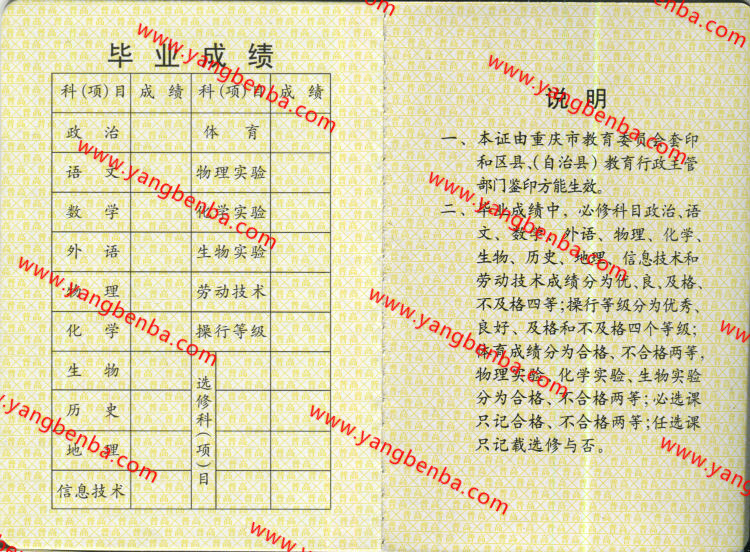 毕业成绩
科(项)目 成绩 科(项)目 成绩
政治 体育
语文 物理实验
数学 化学实验
外语 生物实验
物理 劳动技术
化学 操行等级
生物 选修科(项)目
历史
地理
信息技术
说明
一、本证由重庆市教育委员会套印
和区县、(自治县)教育行政主管
部门鉴印方能生效。
二、毕业成绩中,必修科目政治、语
文、数学、外语、物理、化学、
生物、历史、地理、信息技术和
劳动技术成绩分为优、良、及格、
不及格四等;操行等级分为优秀、
良好、及格和不及格四个等级;
体育成绩分为合格、不合格两等,
物理实验、化学实验、生物实验
分为合格、不合格两等;必选课
只记合格、不合格两等;任选课
只记载选修与否。
www.yangbenba.com
www.yangbenba.com
www.yangbenba.com
www.yangbenba.com
www.yangbenba.com
www.yangbenba.com
www.yangbenba.com